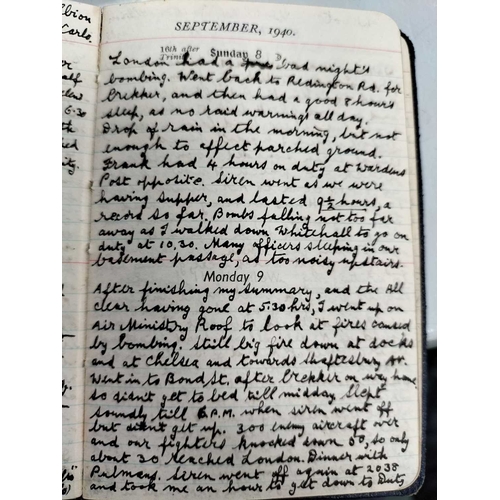 lbion
Carlo.
SEPTEMBER, 1940.
16th after
Trinity
Sunday 8
London had a bad night's
bombing. Went back to Redington Rd. for
brekker, and then had a good 8 hours
sleep, as no raid warnings all day.
Drop of rain in the morning, but not
enough to affect parched ground.
Frank had 4 hours on duty at Wardens
Post opposite. Siren went as we were
having supper, and lasted 9½ hours, a
record so far. Bombs falling not too far
away as I walked down Whitehall to go on
duty at 10.30. Many officers sleeping in our
basement passage, as too noisy upstairs.
Monday 9
After finishing my summary, and the All
clear having gone at 5.30 hrs, I went up on
Air Ministry Roof to look at fires caused
by bombing. Still big fire down at docks
and at Chelsea and towards Shaftesbury Av.
Went in to Bond St. after brekker on way home
so didnt get to bed till midday. Slept
soundly till 6 P.M. when siren went off
but didnt get up. 300 enemy aircraft over
and our fighters knocked down 50, so only
about 30 reached London. Dinner with
Pulmans. Siren went off again at 2038
and took me an hour to get down to Duty